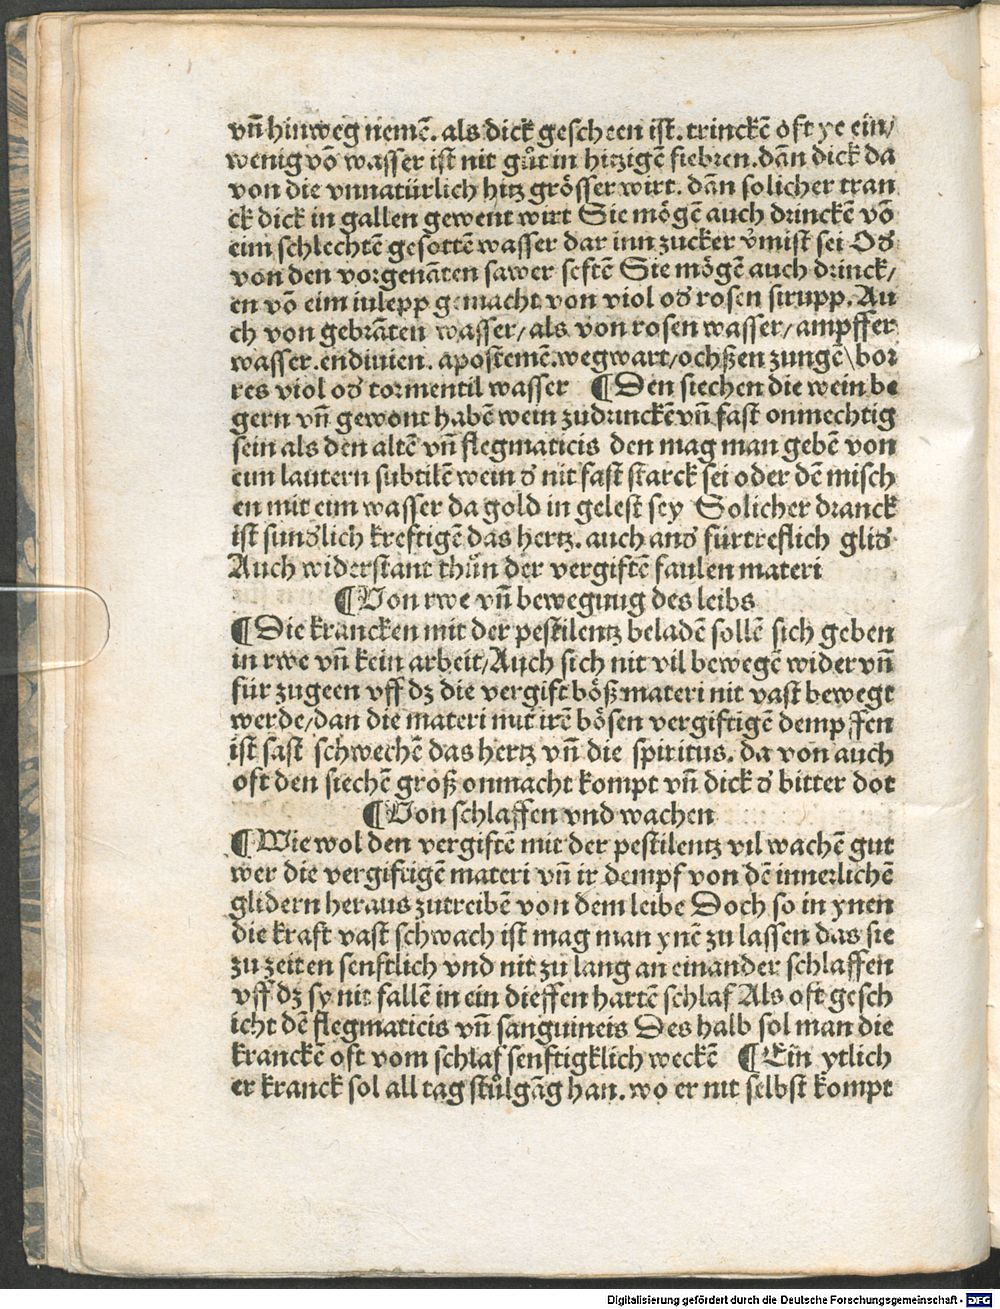 vn̄ hinweg nemē. als dick gescheen ist. trinckē oft ye ein/
wenig vō wasser ist nit gůt in hitzigē fiebren. dān dick da
von die vnnatürlich hitz grösser wirt. dān solicher tran
ck dick in gallen gewent wirt Sie mögē auch drinckē vō
eim schlechtē gesottē wasser dar inn zucker v̄mist sei Od̄
von den vorgenāten sawer seftē Sie mögē auch drinck/
en vō eim iulepp gemacht von viol od̄ rosen sirupp. Au
ch von gebrāten wasser/ als von rosen wasser/ ampffer
wasser. endiuien. apostemē. wegwart/ ochßen zungē\ bor
res viol od̄ tormentil wasser ¶ Den siechen die wein be
gern vn̄ gewont habē wein zudrinckē vn̄ fast onmechtig
sein als den altē vn̄ flegmaticis den mag man gebē von
eim lautern subtilē wein d̄ nit fast starck sei oder dē misch
en mit eim wasser da gold in gelest sey Solicher dranck
ist sund̄lich kreftigē das hertz. auch and̄ fürtreflich glid̄
Auch widerstant thůn der vergiftē faulen materi
¶ Von rwe vn̄ bewegung des leibs
¶ Die krancken mit der pestilentz beladē sollē sich geben
in rwe vn̄ kein arbeit/ Auch sich nit vil bewegē wider vn̄
für zugeen vff dz die vergift böß materi nit vast bewegt
werde/ dan die materi mit irē bösen vergiftigē dempffen
ist fast schwechē das hertz vn̄ die spiritus. da von auch
oft den siechē groß onmacht kompt vn̄ dick d̄ bitter dot
¶ Von schlaffen vnd wachen
¶ Wie wol den vergiftē mit der pestilentz vil wachē gut
wer die vergiftigē materi vn̄ ir dempf von dē innerlichē
glidern heraus zutreibē von dem leibe Doch so in ynen
die kraft vast schwach ist mag man ynē zu lassen das sie
zu zeiten senftlich vnd nit zu lang an einander schlaffen
vff dz sy nit fallē in ein dieffen hartē schlaf Als oft gesch
icht dē flegmaticis vn̄ sanguineis Des halb sol man die
kranckē oft vom schlaf senftigklich weckē ¶ Ein ytlich
er kranck sol all tag stůlgāg han. wo er nit selbst kompt
Digitalisierung gefördert durch die Deutsche Forschungsgemeinschaft - DFG